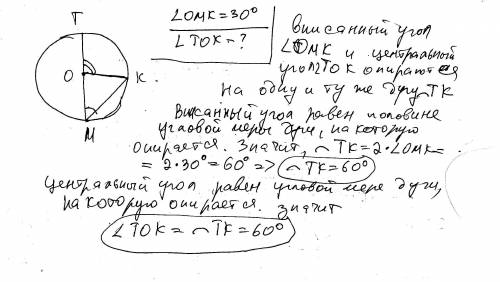 T
O
K
M
∠OMK = 30°
∠TOK - ?
вписанный угол
∠OMK и центральный
угол ∠TOK опираются
на одну и ту же дугу ◡TK
Вписанный угол равен половине
угловой меры дуги, на которую
опирается. Значит, ◡TK = 2·∠OMK =
= 2·30° = 60° => ◡TK = 60°
Центральный угол равен угловой мере дуги,
на которую опирается. значит
∠TOK = ◡TK = 60°